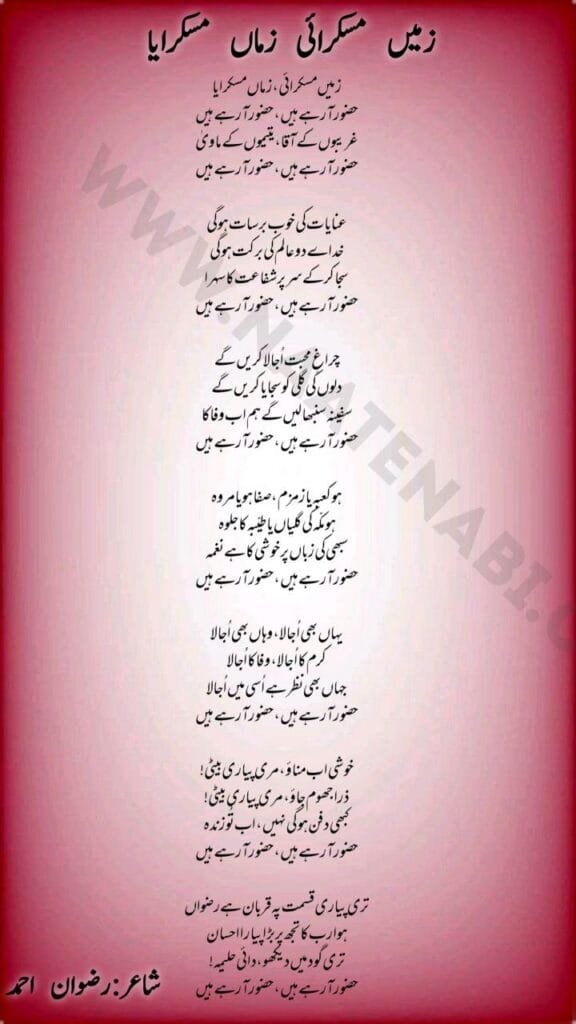 زمیں مسکرائی زماں مسکرایا
زمیں مسکرائی، زماں مسکرایا
حضور آرہے ہیں، حضور آرہے ہیں
غریبوں کے آقا، یتیموں کے ماویٰ
حضور آرہے ہیں، حضور آرہے ہیں
عنایات کی خوب برسات ہوگی
خداے دو عالم کی برکت ہوگی
سجا کر کے سر پر شفاعت کا سہرا
حضور آرہے ہیں، حضور آرہے ہیں
چراغِ محبت اُجالا کریں گے
دلوں کی گلی کو سجایا کریں گے
سفینہ سنبھالیں گے ہم اب وفا کا
حضور آرہے ہیں، حضور آرہے ہیں
ہو کعبہ یا زمزم، صفا ہو یا مروہ
ہو مکّہ کی گلیاں یا طیّبہ کا جلوہ
سبھی کی زباں پر خوشی کا ہے نغمہ
حضور آرہے ہیں، حضور آرہے ہیں
یہاں بھی اُجالا، وہاں بھی اُجالا
کرم کا اُجالا، وفا کا اُجالا
جہاں بھی نظر ہے اُسی میں اُجالا
حضور آرہے ہیں، حضور آرہے ہیں
خوشی اب مناؤ، مری پیاری بیٹی!
ذرا جھوم جاؤ، مری پیاری بیٹی!
کبھی دفن ہوگی نہیں، اب تُو زندہ
حضور آرہے ہیں، حضور آرہے ہیں
تری پیاری قسمت پہ قربان ہے رضواں
ہوا رب کا تجھ پر بڑا پیارا احسان
تری گود میں دیکھو، دائی حلیمہ!
حضور آرہے ہیں، حضور آرہے ہیں
شاعر: رضوان احمد
WWW.NAATENABI.C